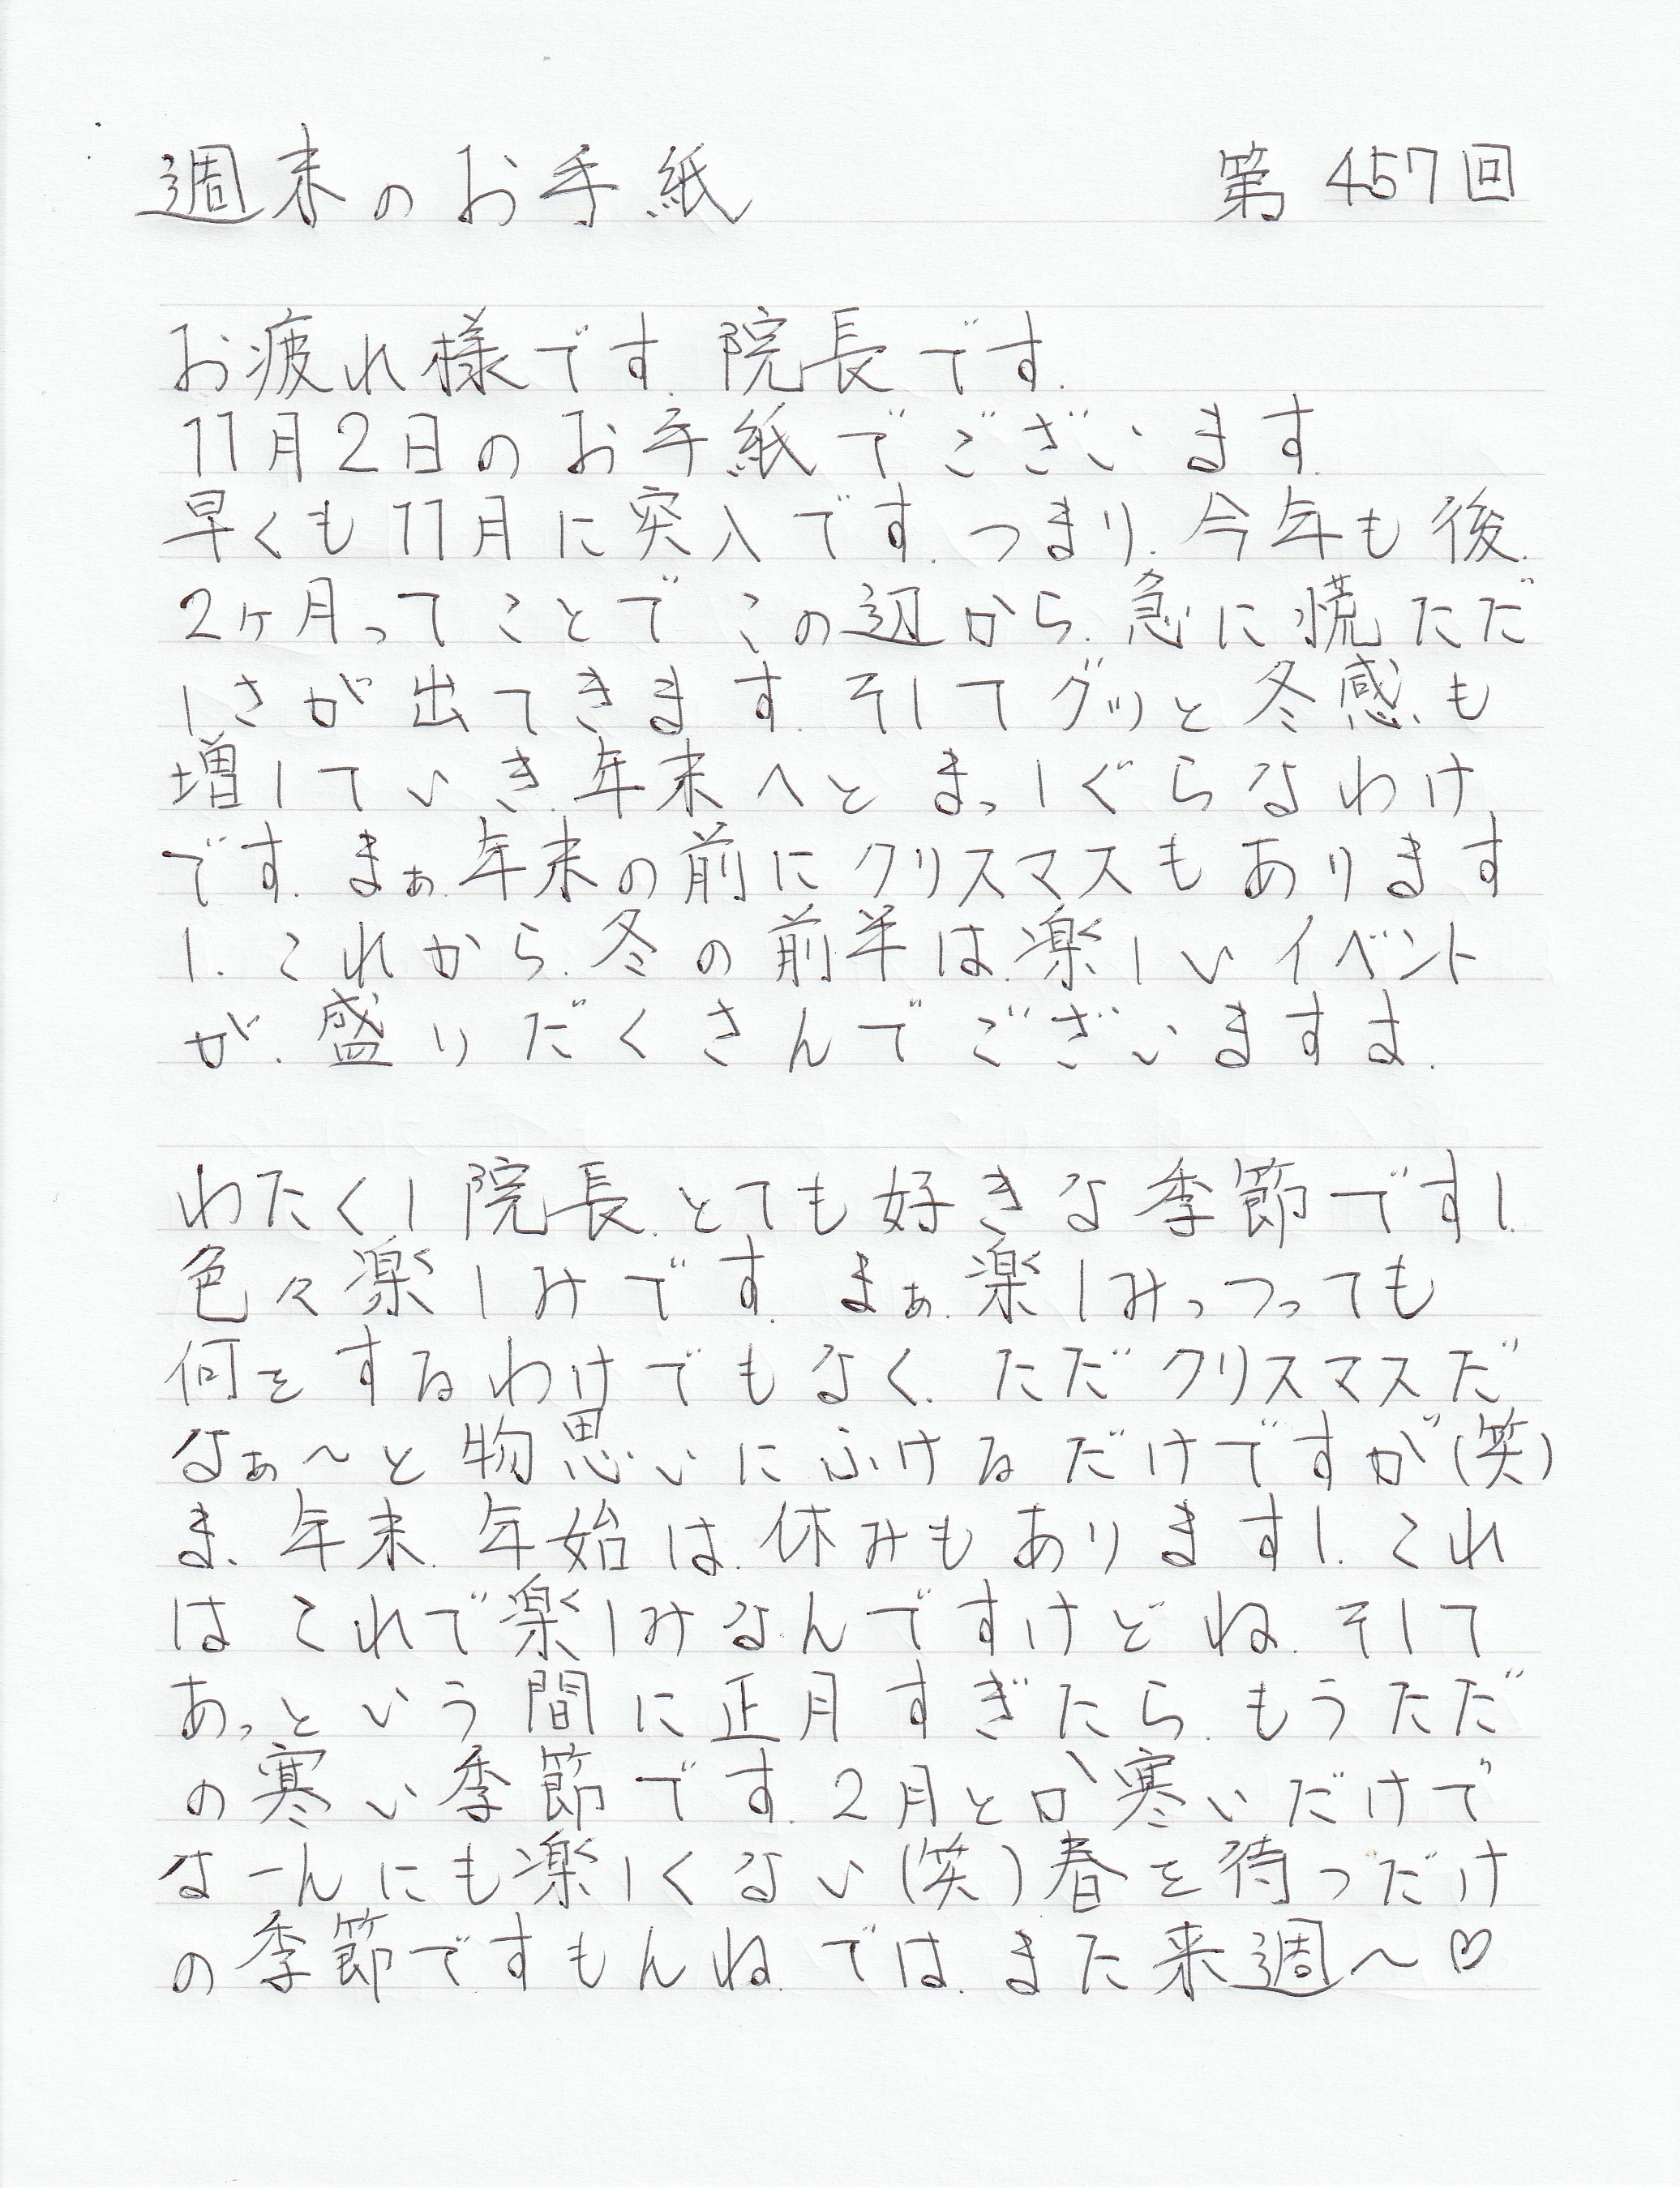 週末のお手紙 第457回
お疲れ様です.院長です.
11月2日のお手紙でございます.
早くも11月に突入です.つまり.今年も後.
2ヶ月ってことでこの辺から.急に慌ただ
しさが出てきます.そしてグッと冬感.も
増していき.年末へとまっしぐらなわけ
です.まぁ.年末の前にクリスマスもあります
し.これから.冬の前半は.楽しいイベント
が.盛りだくさんでございますま.
わたくし院長.とても好きな季節ですし.
色々楽しみです.まぁ.楽しみっつっても
何をするわけでもなく.ただクリスマスだ
なぁ〜と物思いにふけるだけですが(笑)
ま、年末.年始は.休みもありますし.これ
はこれで楽しみなんですけどね.そして
あっという間に正月すぎたら.もうただ
の寒い季節です.2月とか寒いだけで
なーんにも楽しくない(笑)春を待つだけ
の季節ですもんね.では.また来週〜♡